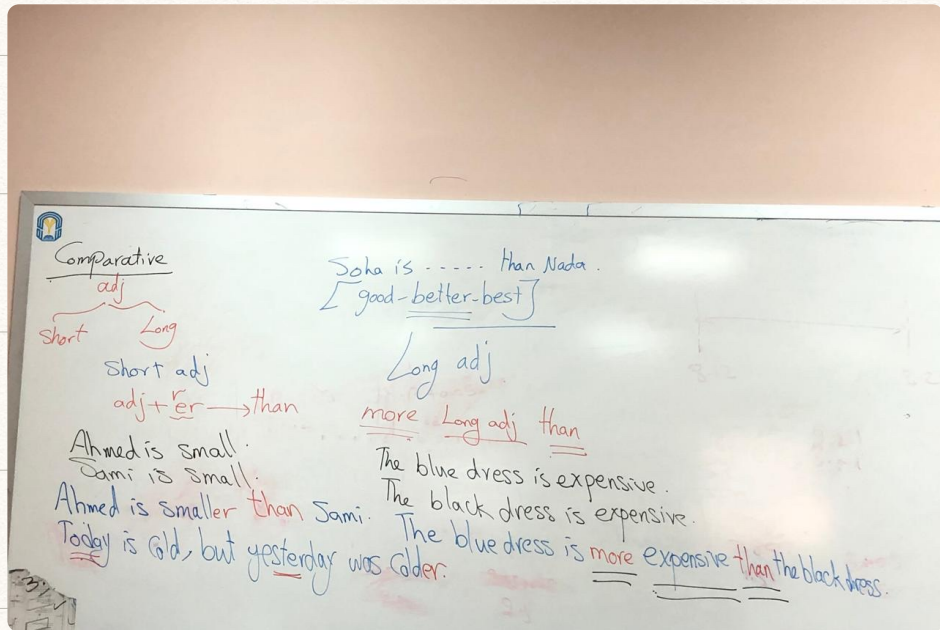 Comparative
adj
Short Long
Short adj
adj + er → than
r
Ahmed is small.
Sami is small.
Ahmed is smaller than Sami.
Today is cold, but yesterday was colder.
Soha is ..... than Nada.
[good-better-best]
Long adj
more Long adj than
The blue dress is expensive.
The black dress is expensive.
The blue dress is more expensive than the black dress.